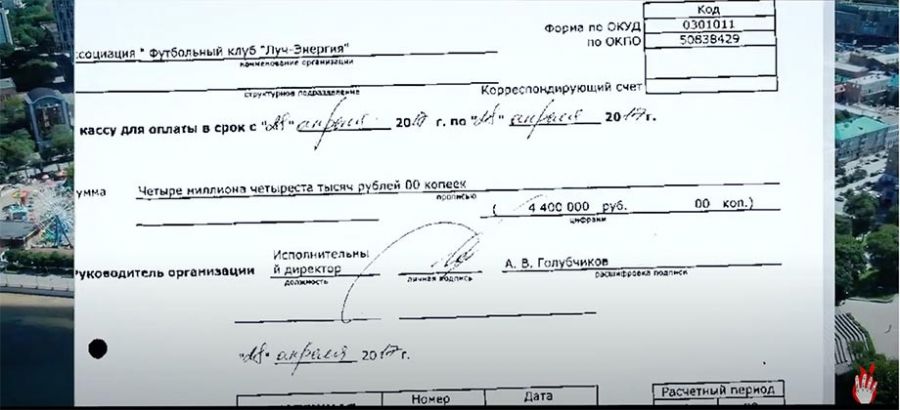 Код
Форма по ОКУД 0301011
по ОКПО 50838429
ссоциация " Футбольный клуб "Луч-Энергия"
наименование организации
структурное подразделение
Корреспондирующий счет
кассу для оплаты в срок с "28" апреля 2017 г. по "28" апреля 2017г.
умма Четыре миллиона четыреста тысяч рублей 00 копеек
прописью
( 4 400 000 руб. 00 коп.)
цифрами
Руководитель организации Исполнительны
й директор А. В. Голубчиков
должность личная подпись расшифровка подписи
"28" апреля 2017г.
Номер Дата Расчетный период